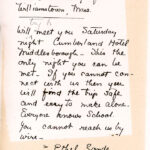 Williamstown, Mass.
Will meet you Saturday
night Cumberland Hotel
Middlesborough - this the
only night you can be
met. If you cannot con-
nect with us then you
will find the trip safe
and easy to make alone.
Everyone knows School
You cannot reach us by
wire -
- Ethel